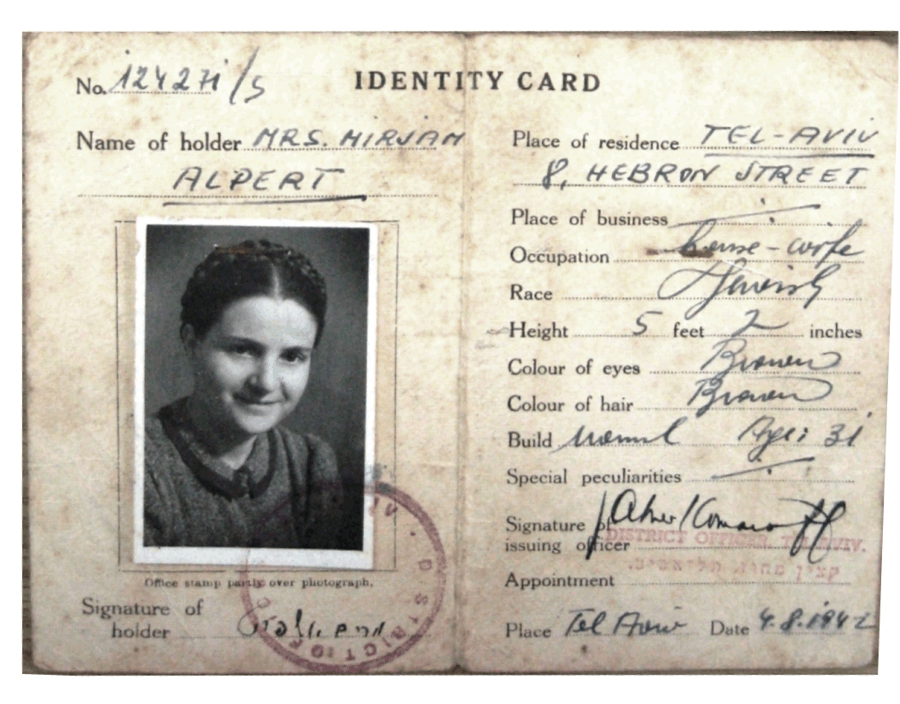 No. 124271/S
IDENTITY CARD
Name of holder MRS. MIRJAM
ALPERT
Office stamp partly over photograph.
Signature of
holder
DISTRICT OF
Place of residence TEL-AVIV
8, HEBRON STREET
Place of business
Occupation house-wife
Race Jewish
Height 5 feet 2 inches
Colour of eyes Brown
Colour of hair Brown
Build normal Age: 31
Special peculiarities
Signature of
issuing officer
DISTRICT OFFICER, TEL-AVIV.
קצין מחוז תל-אביב.
Appointment
Place Tel Aviv Date 4.8.1942